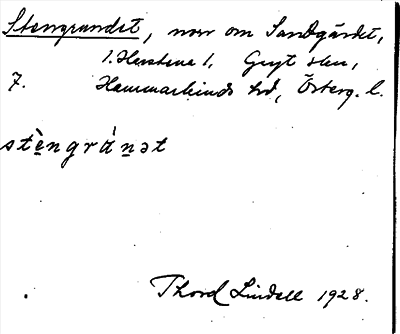 Stengrundet, norr om Sandgärdet,
1. Herstena 1, Gryt skn,
7. Hammarkinds hd, Österg. l.
stèngrànət
Thord Lindell 1928.